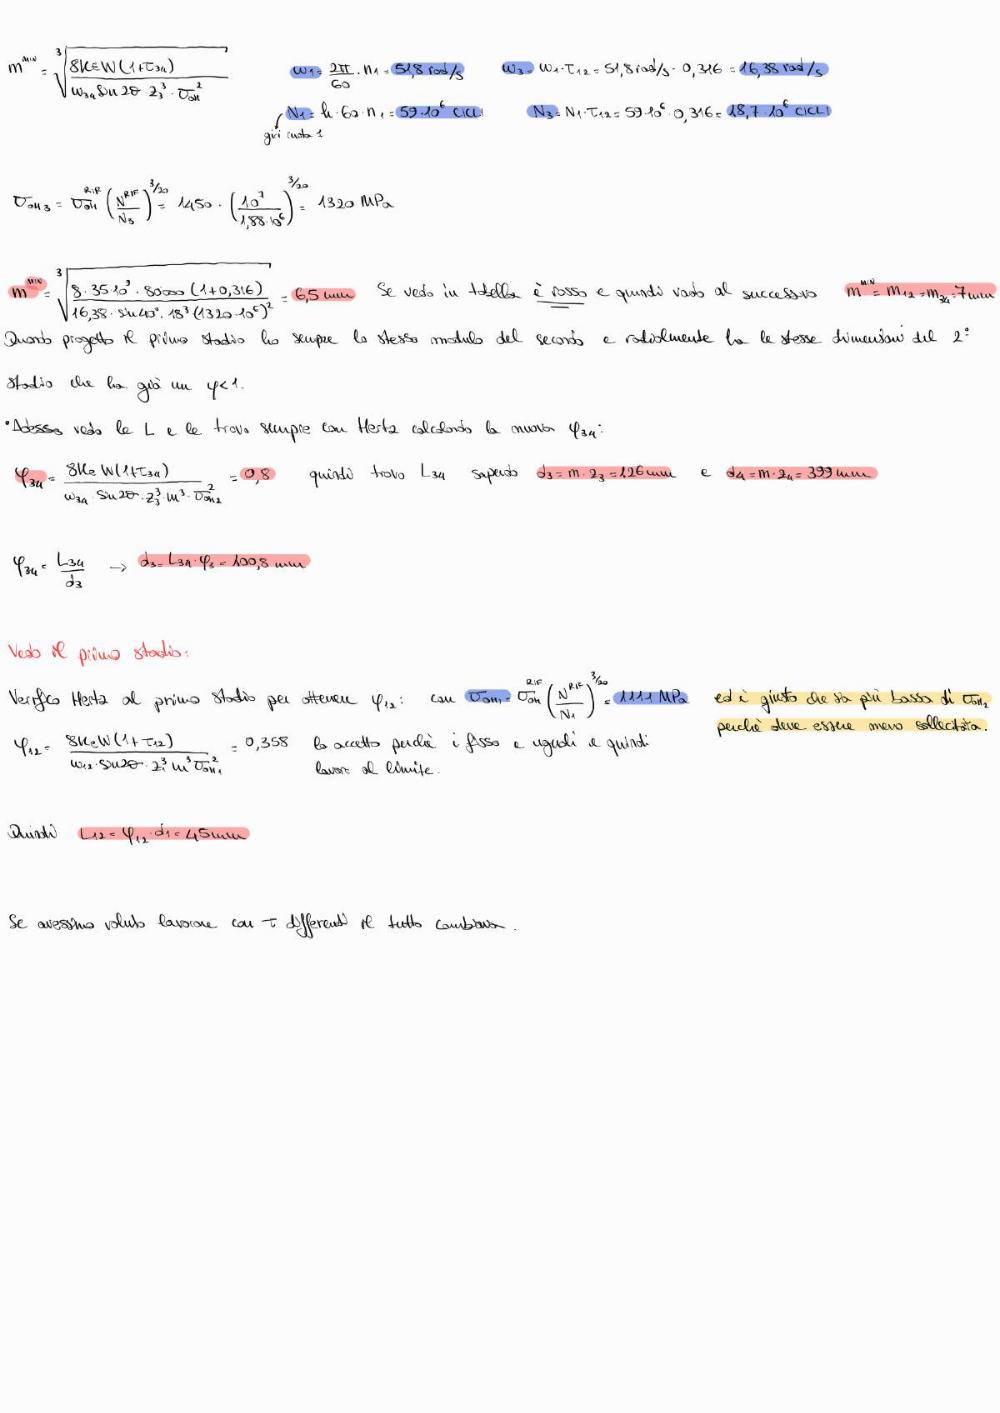 m^MIN = ∛(8KEW(1+τ34) / ω34 sin2θ z3³·σOH²)
ω1 = 2π/60 · n1 = 51,8 rad/s
ω3 = ω1·τ12 = 51,8 rad/s · 0,316 = 16,38 rad/s
N1 = h·60·n1 = 59·10⁶ CICLI
N3 = N1·τ12 = 59·10⁶·0,316 = 18,7·10⁶ CICLI
giri ruota 1
σOH3 = σOH^RIF (N^RIF/N3)^3/20 = 1450 · (10⁷/1,88·10⁶)^3/20 = 1320 MPa
m^MIN = ∛(8·35·10³·80000(1+0,316) / 16,38·sin40°·18³(1320·10⁶)²) = 6,5 mm Se vedo in tabella è rosso e quindi vado al successivo m^MIN = m12 = m34 = 7mm
Quando progetto il primo stadio ho sempre lo stesso modulo del secondo e radialmente ha le stesse dimensioni del 2°
stadio che ha già un φ<1.
•Adesso vedo le L e le trovo sempre con Hertz calcolando la nuova φ34:
φ34 = 8KeW(1+τ34) / ω34·sin2θ·z3³·m³·σOH2² = 0,8 quindi trovo L34 sapendo d3 = m·z3 = 126mm e d4 = m·z4 = 399mm
φ34 = L34/d3 → d3 = L34·φ3 = 100,8 mm
Vedo il primo stadio:
Verifico Hertz al primo stadio per ottenere φ12: con σOH1 = σOH^RIF (N^RIF/N1)^3/20 = 1111 MPa ed è giusto che sia più bassa di σOH2
perchè deve essere meno sollecitata.
φ12 = 8KeW(1+τ12) / ω12·sin2θ·z1³ m³ σOH1² = 0,358 lo accetto perchè i fisso e uguali e quindi
lavoro al limite.
Quindi L12 = φ12·d1 = 45mm
Se avessimo voluto lavorare con τ differenti il tutto cambiava.